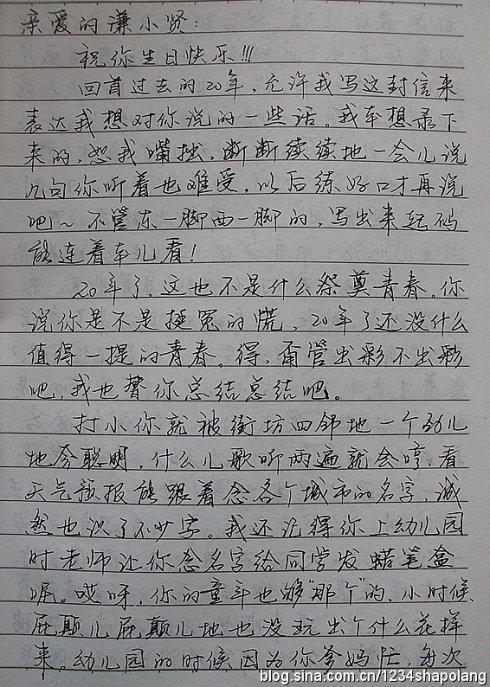 亲爱的谦小贤：
祝你生日快乐!!!
回首过去的20年，允许我写这封信来
表达我想对你说的一些话。我本想录下
来的，恕我嘴拙，断断续续地一会儿说
几句你听着也难受，以后练好口才再说
吧～不管东一脚西一脚的，写出来起码
能连着串儿看！
20年了，这也不是什么祭奠青春。你
说你是不是挺冤的慌，20年了还没什么
值得一提的青春。得，甭管出彩不出彩
吧，我也替你总结总结吧。
打小你就被街坊四邻地一个劲儿
地夸聪明，什么儿歌听两遍就会哼，看
天气预报能跟着念各个城市的名字，诚
然也识了不少字。我还记得你上幼儿园
时老师让你念名字给同学发蜡笔盒
呢。哎呀，你的童年也够“那个”的，小时候
屁颠儿屁颠儿地也没玩出个什么花样
来。幼儿园的时候因为你爹妈忙，每次
blog.sina.com.cn/1234shapolang